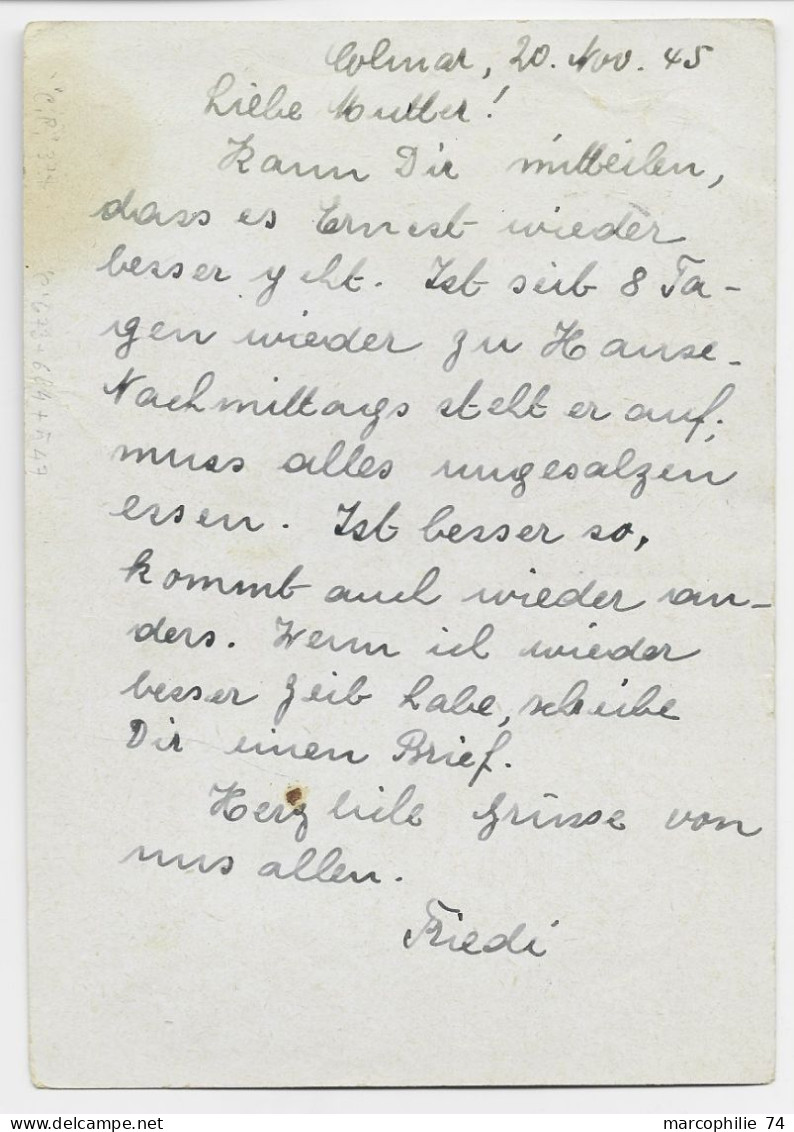 Colmar, 20. Nov. 45
Liebe Mutter!
Kann Dir mitteilen,
dass es Ernest wieder
besser geht. Ist seit 8 Ta-
gen wieder zu Hause.
Nachmittags steht er auf;
muss alles ungesalzen
essen. Ist besser so,
kommt auch wieder an-
ders. Wenn ich wieder
besser Zeit habe, schreibe
Dir einen Brief.
Herzliche Grüsse von
uns allen.
Friedi
marcophilie 74